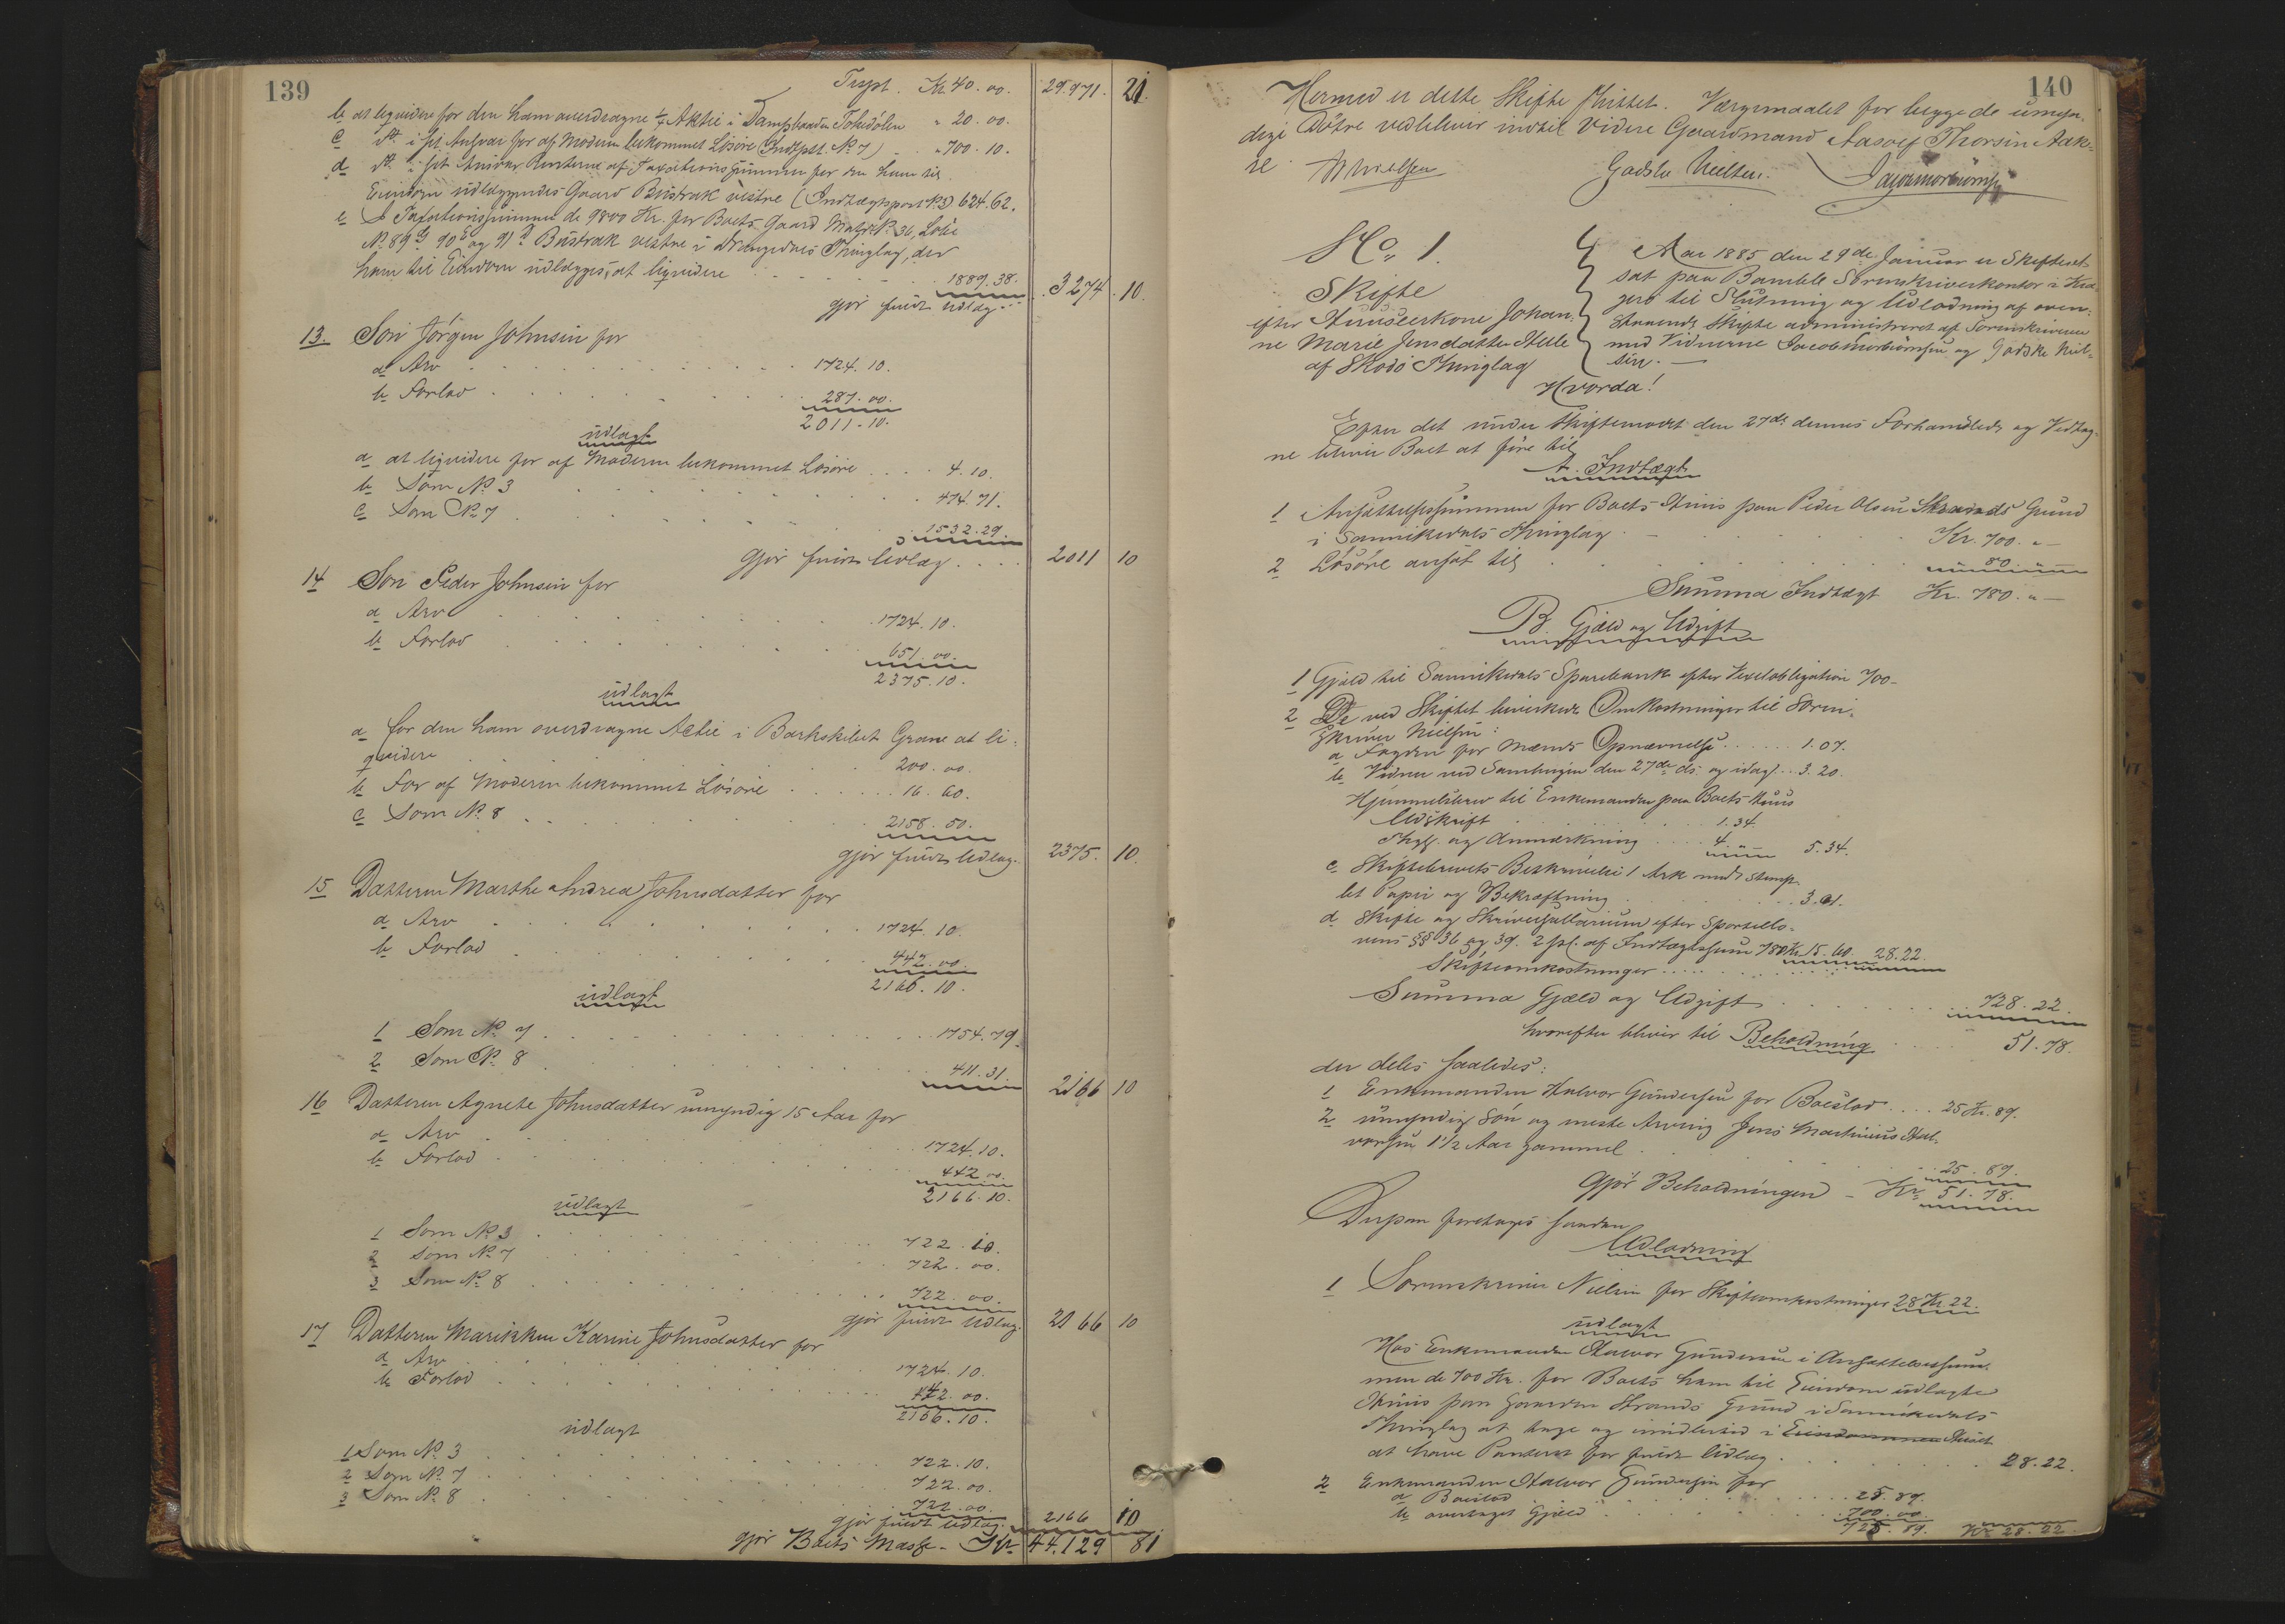 139
Trspt. Kr. 40. 00. 29.971. 21.
b at liqvidere for den ham overdragne 1/4 Aktie i Dampbaaden Tokedølen " 20. 00.
c dto i sit Ansvar for af Moderen bekommet Løsøre (Indtgtspt. No 7) " 700. 10.
d dto i sit Ansvar Renterne af Taxationssummen for den ham til
Eiendom udlæggendes Gaard Bustrak vestre (Indtægtspost No 3) 624. 62.
e I Taxationssummen de 9800 Kr. for Boets Gaard Matr. No 36, Løbe
No 89 90 og 91 Bustrak vestre i Drangedals Thinglag, der
ham til Eiendom udlægges, at liqvidere 1889. 38.
gjør fuldt Udlæg 3274. 10.
13. Søn Jørgen Johnsen for
a Arv 1724. 10.
b Forlod 287. 00.
2011. 10.
udlagt
a at liqvidere for af Moderen bekommet Løsøre 4. 10.
b Som No 3 474. 71.
c Som No 7 1532. 29.
gjør fuldt Udlæg 2011 10
14 Søn Peder Johnsen for
a Arv 1724. 10.
b Forlod 651. 00.
2375. 10.
udlagt
a for den ham overdragne Actie i Barkskibet Grane at li-
qvidere 200. 00.
b For af Moderen bekommet Løsøre 16. 60.
c Som No 8 2158. 50.
gjør fuldt Udlæg. 2375. 10.
15 Datteren Marthe Andrea Johnsdatter for
a Arv 1724. 10.
b Forlod 442. 00.
2166. 10.
udlagt
1 Som No 7 1754. 79.
2 Som No 8 411. 31. 2166 10
16 Datteren Agnete Johnsdatter umyndig 15 Aar for
a Arv 1724. 10.
b Forlod 442 00.
2166. 10.
udlagt
1 Som No 3 722. 10.
2 Som No 7 722. 00.
3 Som No 8 722. 00.
gjør fuldt Udlæg. 2166 10
17 Datteren Marikken Karine Johnsdatter for
a Arv 1724. 10.
b Forlod 442. 00.
2166. 10.
udlagt
1 Som No 3 722. 10.
2 Som No 7 722. 00.
3 Som No 8 722. 00.
gjør fuldt Udlæg. 2166 10
gjør Boets Masse - Kr 44.129 81
140
Hermed er dette Skifte sluttet. Værgemaalet for begge de umyn-
dige Døtre vedbliver indtil Videre Gaardmand Aasolf Thorsen Aak-
re. Nielsen Gadske Nielsen. Jacob Morbiørnsen
No 1.
Skifte
efter Huuseierkone Johan-
ne Marie Jensdatter Helle
af Skaadø Thinglag
Aar 1885 den 29de Januar er Skifteret
sat paa Bamble Sorenskriverkontor i Kra-
gerø til Slutning og Udlodning af oven-
staaende Skifte administreret af Sorenskriveren
med Vidnerne Jacob Morbiørnsen og Gadske Niel-
sen.
Hvorda!
Efter det under Skiftemødet den 27de dennes Forhandlede og Vedtag-
ne bliver Boet at føre til
A. Indtægt
1 Ansættelsessummen for Boets Huus paa Peder Olsen Strands Grund
i Sannikedals Thinglag Kr. 700. " —
2 Løsøre ansat til 80. " —
Summa Indtægt Kr. 780. " —
B Gjæld og Udgift
1 Gjæld til Sannikedals Sparebank efter Vexelobligation 700 -
2 De ved Skiftet bevirkede Omkostninger til Soren-
skriver Nielsen:
a Fogden for Mænds Opnævnelse 1. 07.
b Vidner ved Samlingen den 27de ds. og idag 3. 20.
Hjemmelsbrev til Enkemanden paa Boets Huus
Udskrift 1. 34.
Thgl. og Anmærkning 4. " 5. 34.
c Skiftebrevets Beskrivelse 1 Ark med stemp-
let Papir og Bekræftning 3. 01.
d Skifte og Skriversallarium efter Sportello-
vens §§ 36 og 39. 2 pCt. af Indtægtssum 780 Kr. 15. 60. 28. 22.
Skifteomkostninger
Summa Gjæld og Udgift 728. 22.
hvorefter bliver til Beholdning 51. 78.
der deles saaledes:
1 Enkemanden Halvor Gundersen for Boeslod 25 Kr. 89.
2 umyndig Søn og eneste Arving Jens Mathinius Hal-
vorsen 1 1/2 Aar gammel 25. 89.
Gjør Beholdningen - Kr. 51. 78.
Derpaa foretages saadan
Udlodning
1 Sorenskriver Nielsen for Skifteomkostninger 28 Kr 22.
udlagt
Hos Enkemanden Halvor Gundersen i Ansættelsessum-
men de 700 Kr. for Boets ham til Eiendom udlagte
Huus paa Gaarden Strands Grund i Sannikedals
Thinglag at tage og imidlertid i Eiendommen Huset
at have Panteret for fuldt Udlæg 28. 22.
2 Enkemanden Halvor Gundersen for
a Boeslod 25. 89.
b overtaget Gjæld 700. 00.
725. 89. Kr 28. 22.